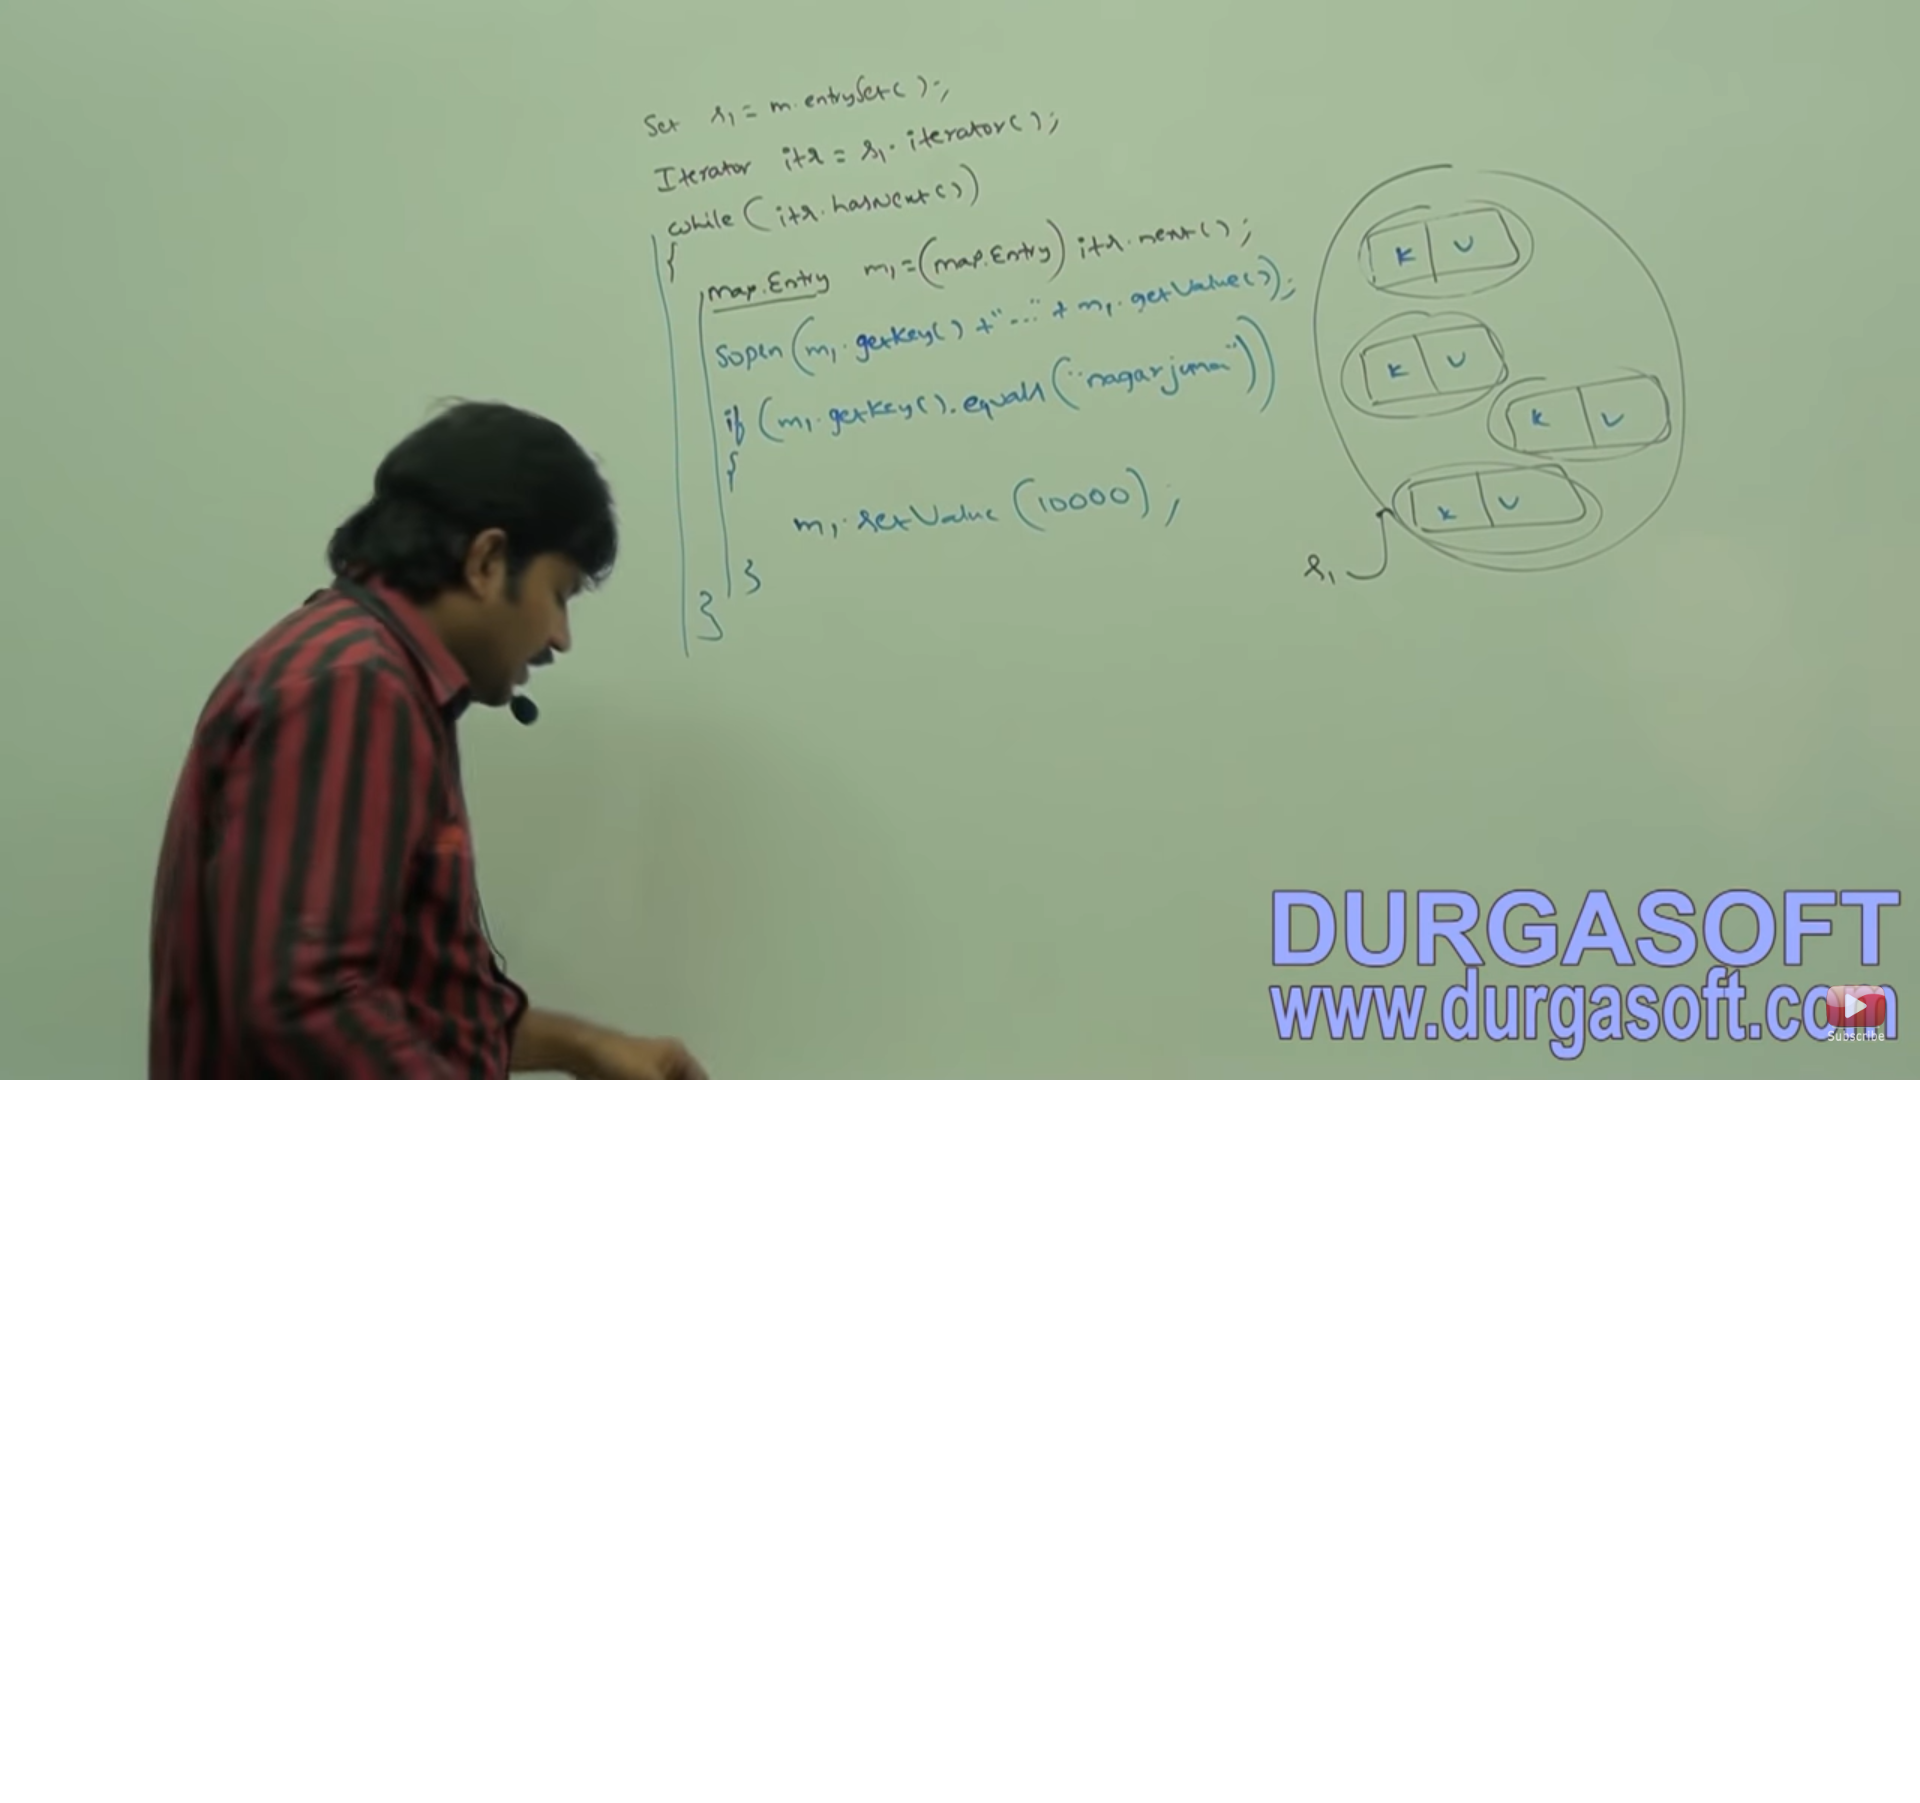 Set s1 = m.entrySet();
Iterator itr = s1.iterator();
while (itr.hasNext())
{
map.Entry m1 = (map.Entry) itr.next();
Sopln (m1.getKey() + "..." + m1.getValue());
if (m1.getKey().equals("nagarjuna"))
{
m1.setValue (10000);
}
}
K V
K V
K V
K V
s1
DURGASOFT
www.durgasoft.com
Subscribe